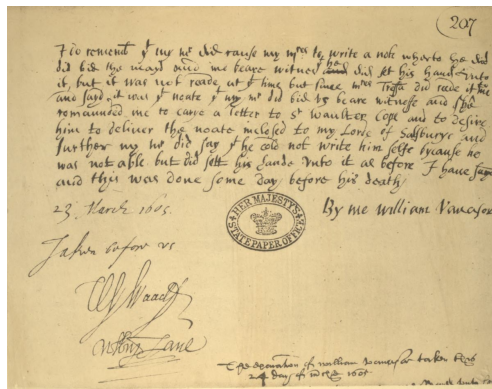 207
I do rememb yt my mr did cause my mres to write a note wherto he did
did bid the mayd and me beare witnes he did set his hand unto
it, but it was not reade, at yt time but since mres Tresa did reade it to me
and sayd, it was ye noate yt my mr did bid us beare witnesse and she
commaunded me to carre a letter to Sr Waulter Cope and to desire
him to deliver the noate inclosed to my Lorde of Salsburye and
further my mr did say yt he cold not write him selfe bycause he
was not able but did sett his hande unto it as before I have
and this was done some day before his death
23 March 1605. By me William Vavasor
Taken before us
W Waad
HER MAJESTY'S
STATE PAPER OFFICE
Lane
The examination of William Vavasor taken this
24 day of March 1605